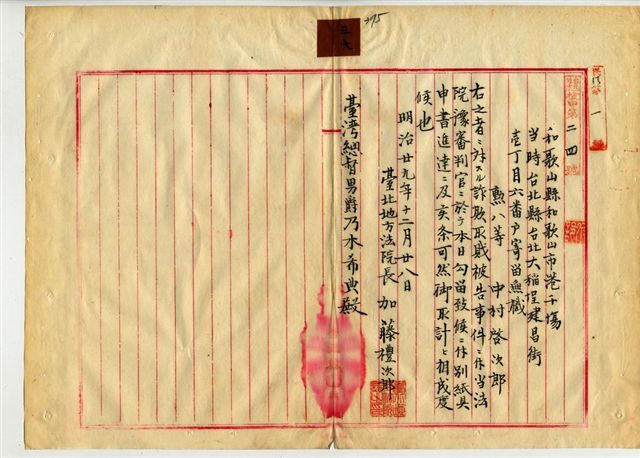 395
三七
二四
一
和歌山縣和歌山市港千場
当時台北縣台北大稲埕建昌街
壱丁目六番戸寄留無職
勲八等 中村啓次郎
右之者ニ対スル詐欺取財被告事件ニ付当法
院豫審判官ニ於テ本日勾留致候ニ付別紙具
申書進達ニ及候条可然御取計ヒ相成度
候也
明治廿九年十二月廿八日
臺北地方法院長 加藤禮次郎
臺湾総督男爵乃木希典殿